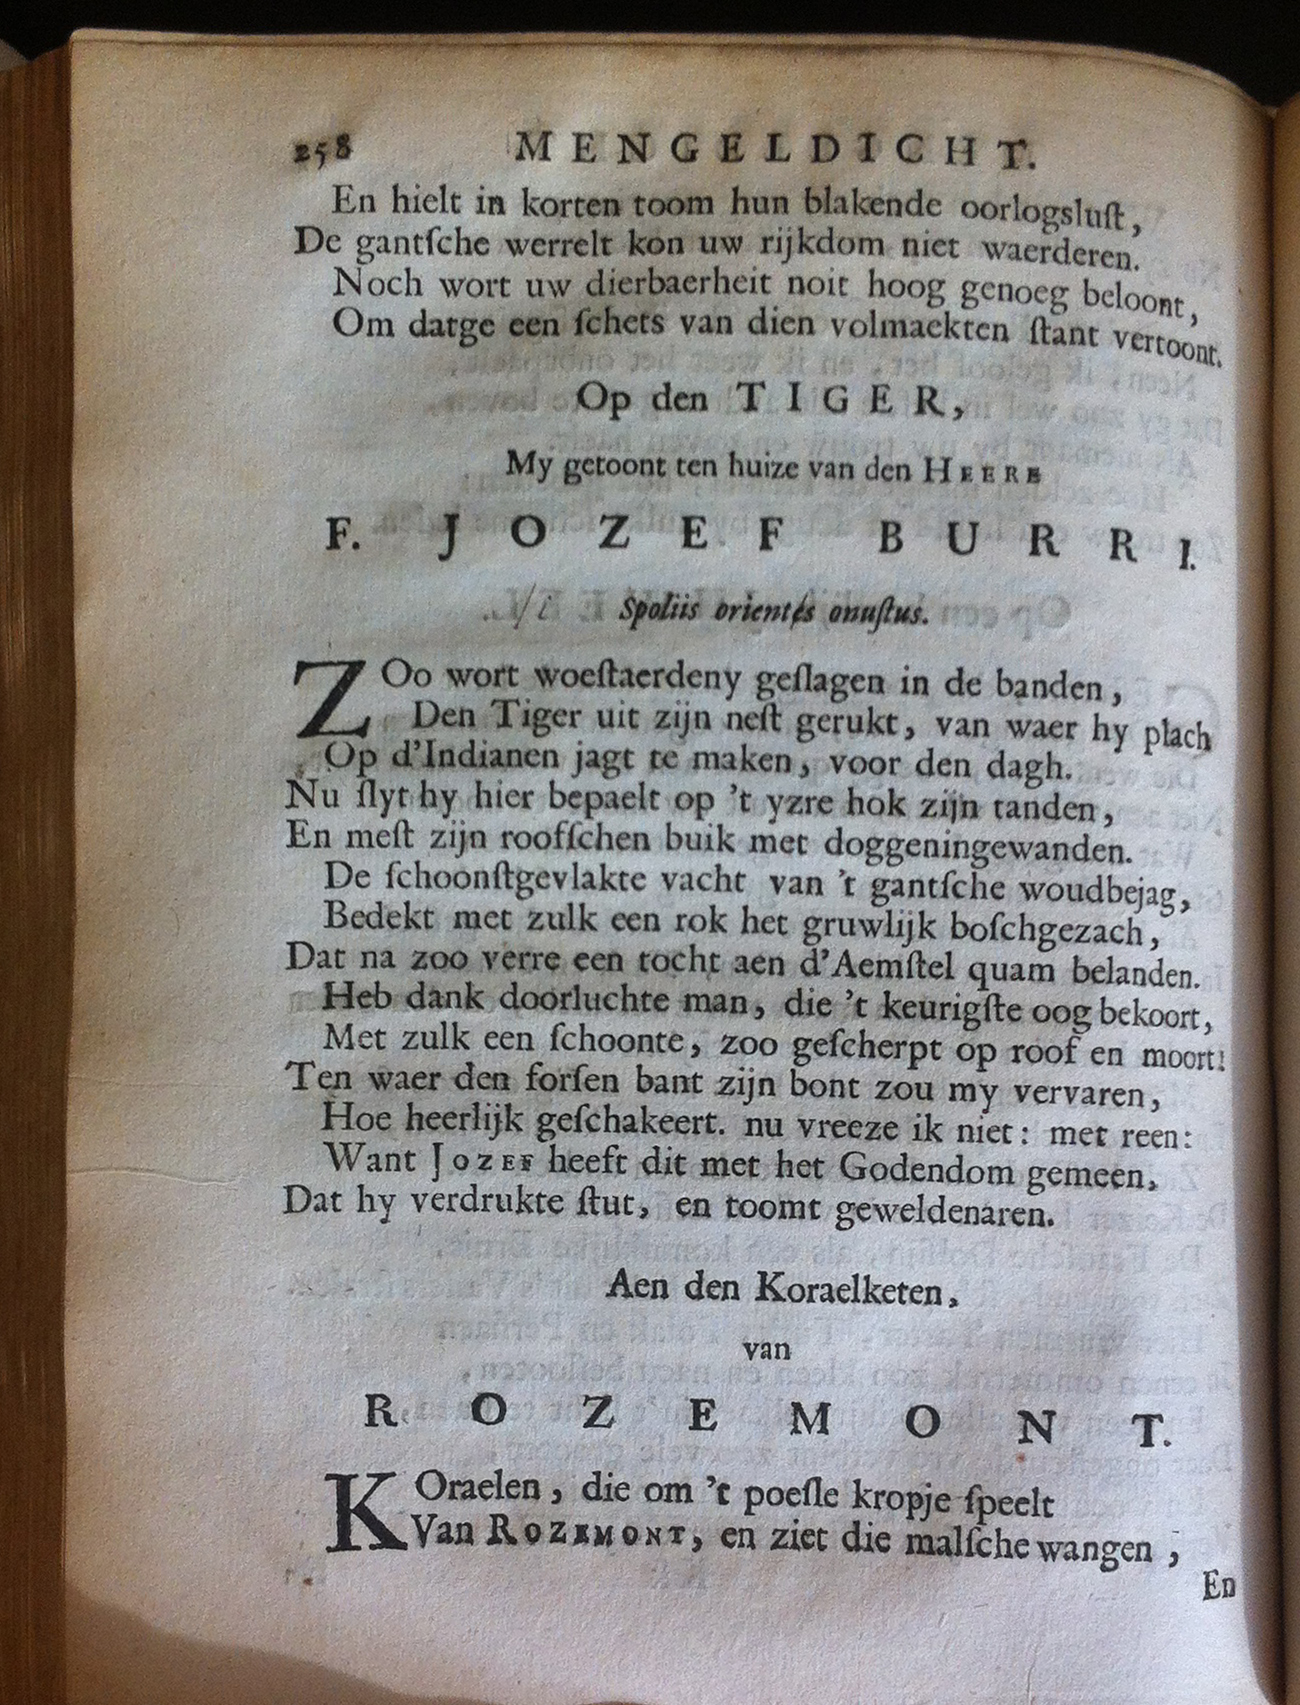 258 MENGELDICHT.
En hielt in korten toom hun blakende oorlogsluſt,
De gantſche werrelt kon uw rijkdom niet waerderen.
Noch wort uw dierbaerheit noit hoog genoeg beloont,
Om datge een ſchets van dien volmaekten ſtant vertoont.
Op den TIGER,
My getoont ten huize van den HEERE
F. JOZEF BURRI.
/i Spoliis orientes onuſtus.
ZOo wort woeſtaerdeny geſlagen in de banden,
Den Tiger uit zijn neſt gerukt, van waer hy plach
Op d'Indianen jagt te maken, voor den dagh.
Nu ſlyt hy hier bepaelt op 't yzre hok zijn tanden,
En meſt zijn roofſchen buik met doggeningewanden.
De ſchoonſtgevlakte vacht van 't gantſche woudbejag,
Bedekt met zulk een rok het gruwlijk boſchgezach,
Dat na zoo verre een tocht aen d'Aemſtel quam belanden.
Heb dank doorluchte man, die 't keurigſte oog bekoort,
Met zulk een ſchoonte, zoo geſcherpt op roof en moort!
Ten waer den forſen bant zijn bont zou my vervaren,
Hoe heerlijk geſchakeert. nu vreeze ik niet: met reen:
Want JOZEF heeft dit met het Godendom gemeen,
Dat hy verdrukte ſtut, en toomt geweldenaren.
Aen den Koraelketen,
van
ROZEMONT.
KOraelen, die om 't poeſle kropje ſpeelt
Van ROZEMONT, en ziet die malſche wangen,
En